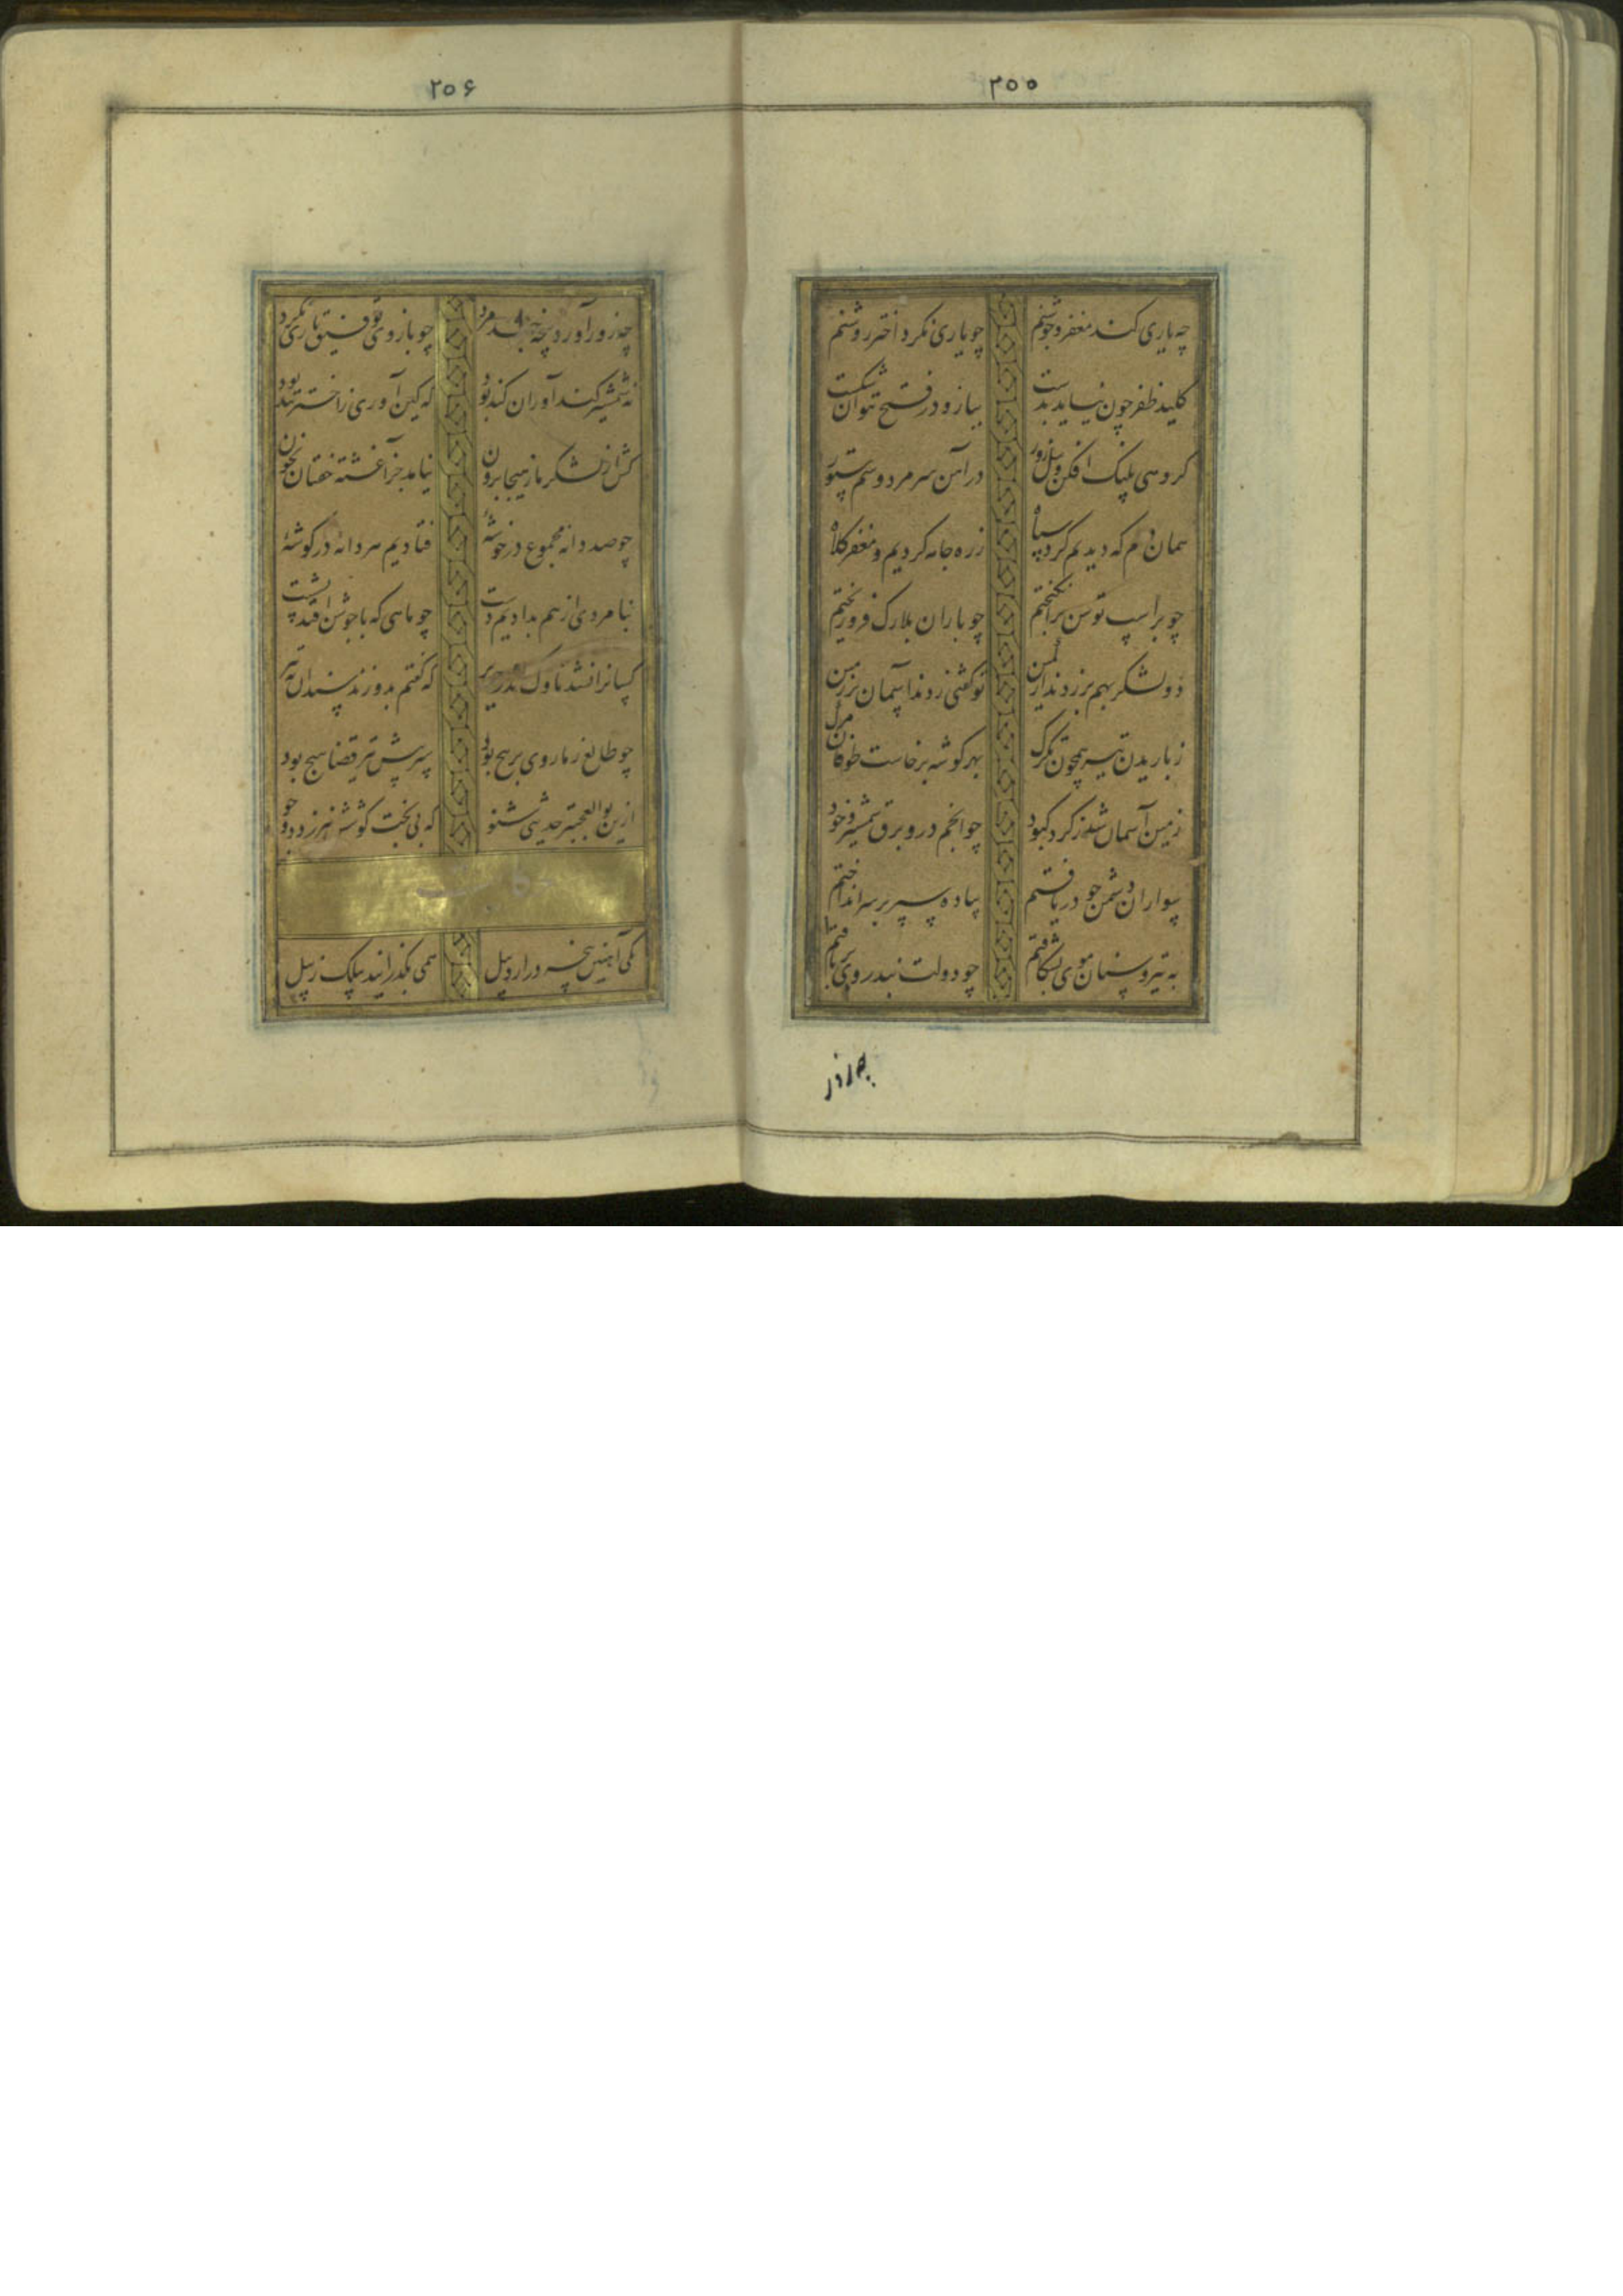 ۲۵۵
چه یاری کند مغفر و جوشنم چو یاری نکرد اختر روشنم
کلید ظفر چون نیاید بدست ببازو در فتح نتوان شکست
گروهی پلنک افکن و پیل زور در آهن سر مرد و سم ستور
همان دم که دیدیم گرد سپاه زره جامه کردیم و مغفر کلاه
چو بر اسپ توسن برانگیختیم چو باران بلارک فرو ریختیم
دو لشکر بهم بر زدند از کمین تو گفتی زدند آسمان بر زمین
ز باریدن تیر همچون تگرگ بهر گوشه برخاست طوفان مرگ
زمین آسمان شد ز گرد کبود چو انجم درو برق شمشیر و خود
سواران دشمن چو دریافتیم پیاده سپر بر سر انداختیم
به تیر و سنان موی بشکافتیم چو دولت نبد روی برتافتیم
چه زور
۲۵۶
چه زور آورد پنجه جهد مرد چو بازوی توفیق یاری نکرد
نه شمشیر کندآوران کند بود که کین آوری ز اختر تند بود
کس از لشکر ما ز هیجا برون نیامد جز آغشته خفتان بخون
چو صد دانه مجموع در خوشهٔ فتادیم هر دانه در گوشهٔ
بنامردی از هم بدادیم دست چو ماهی که با جوشن افتد بشست
کسانرا نشد ناوک اندر حریر که گفتم بدوزند سندان به تیر
چو طالع ز ما روی بر پیچ بود سپر پیش تیر قضا هیچ بود
ازین بوالعجبتر حدیثی شنو که بی بخت کوشش نیرزد دو جو
حکایت
یکی آهنین پنجه در اردبیل همی بگذرانید بیلک ز پیل